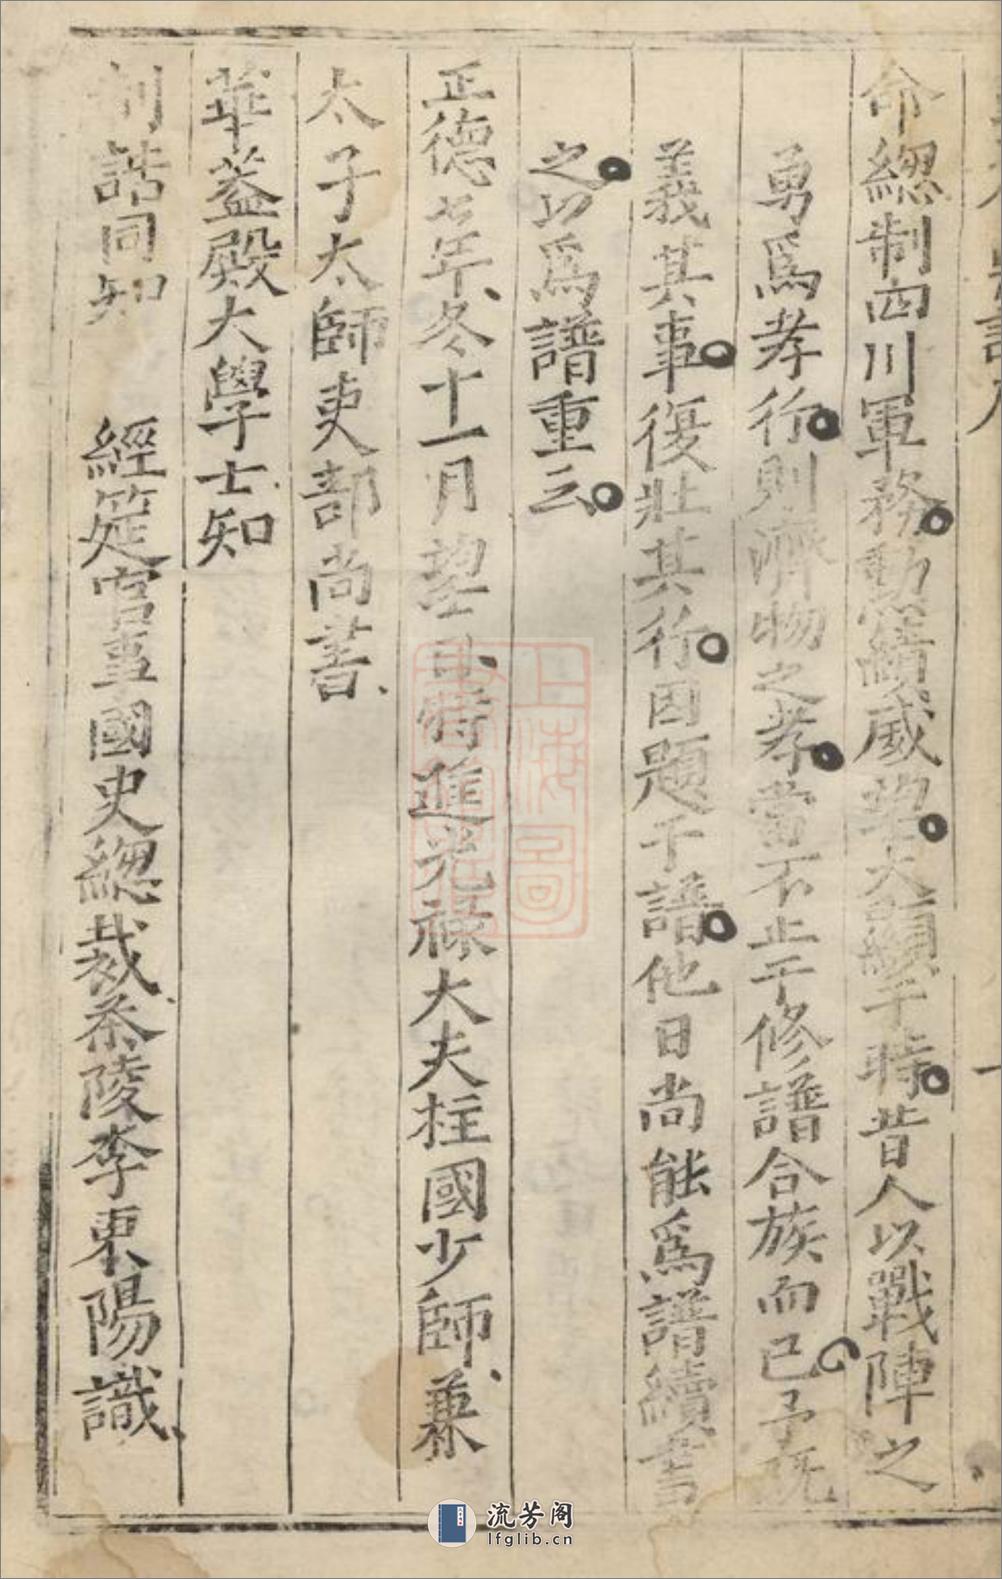 命總制四川軍務勳績威望大顯于時昔人以戰陣之
勇爲孝行則濟物之孝當不止于修譜合族而已予既
義其事復壯其行因題于譜他日尚能爲譜續書
之以爲譜重云
正德七年冬十一月望日特進光祿大夫柱國少師兼
太子太師吏部尚書
華蓋殿大學士知
制誥同知 經筵官事國史總裁茶陵李東陽識
上海圖
流芳阁
lfglib.cn